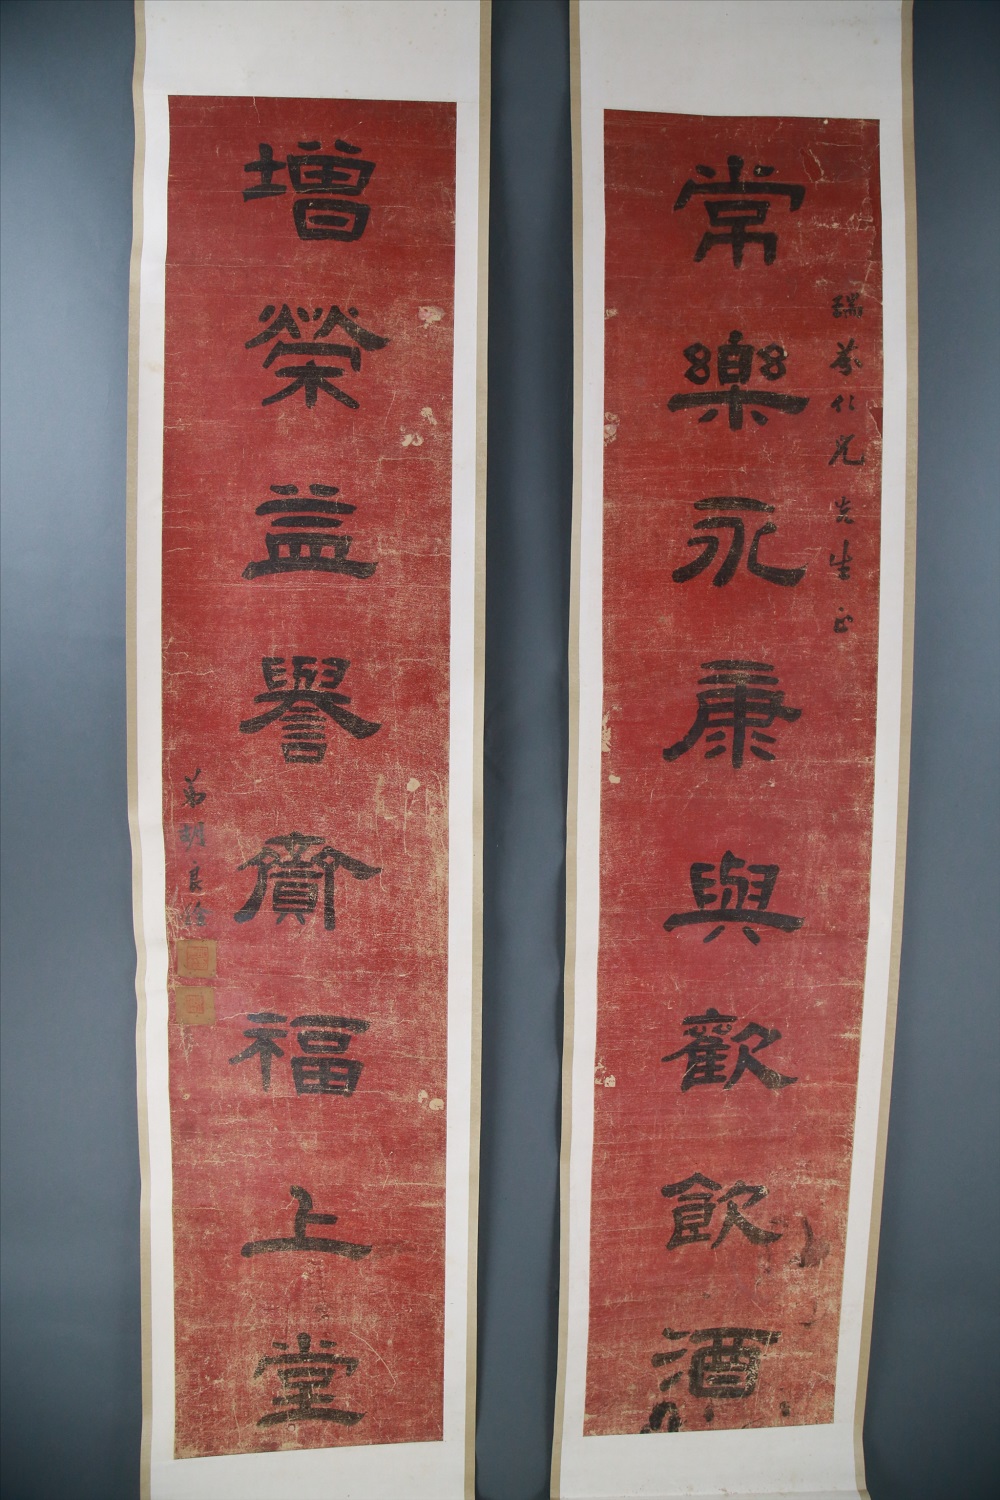 瑞仁兄先生正
常樂永康與歡飲酒
增榮益譽齎福上堂
弟胡良